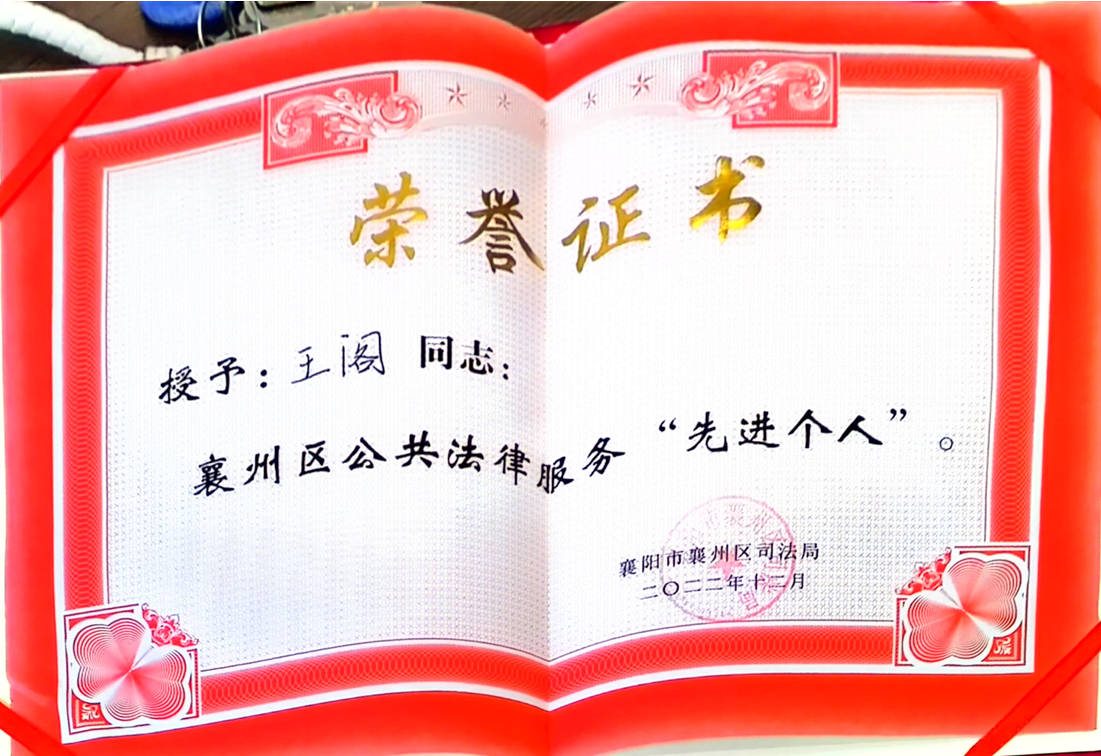 荣誉证书
授予：王阁 同志：
襄州区公共法律服务“先进个人”。
襄阳市襄州区司法局
二〇二二年十二月